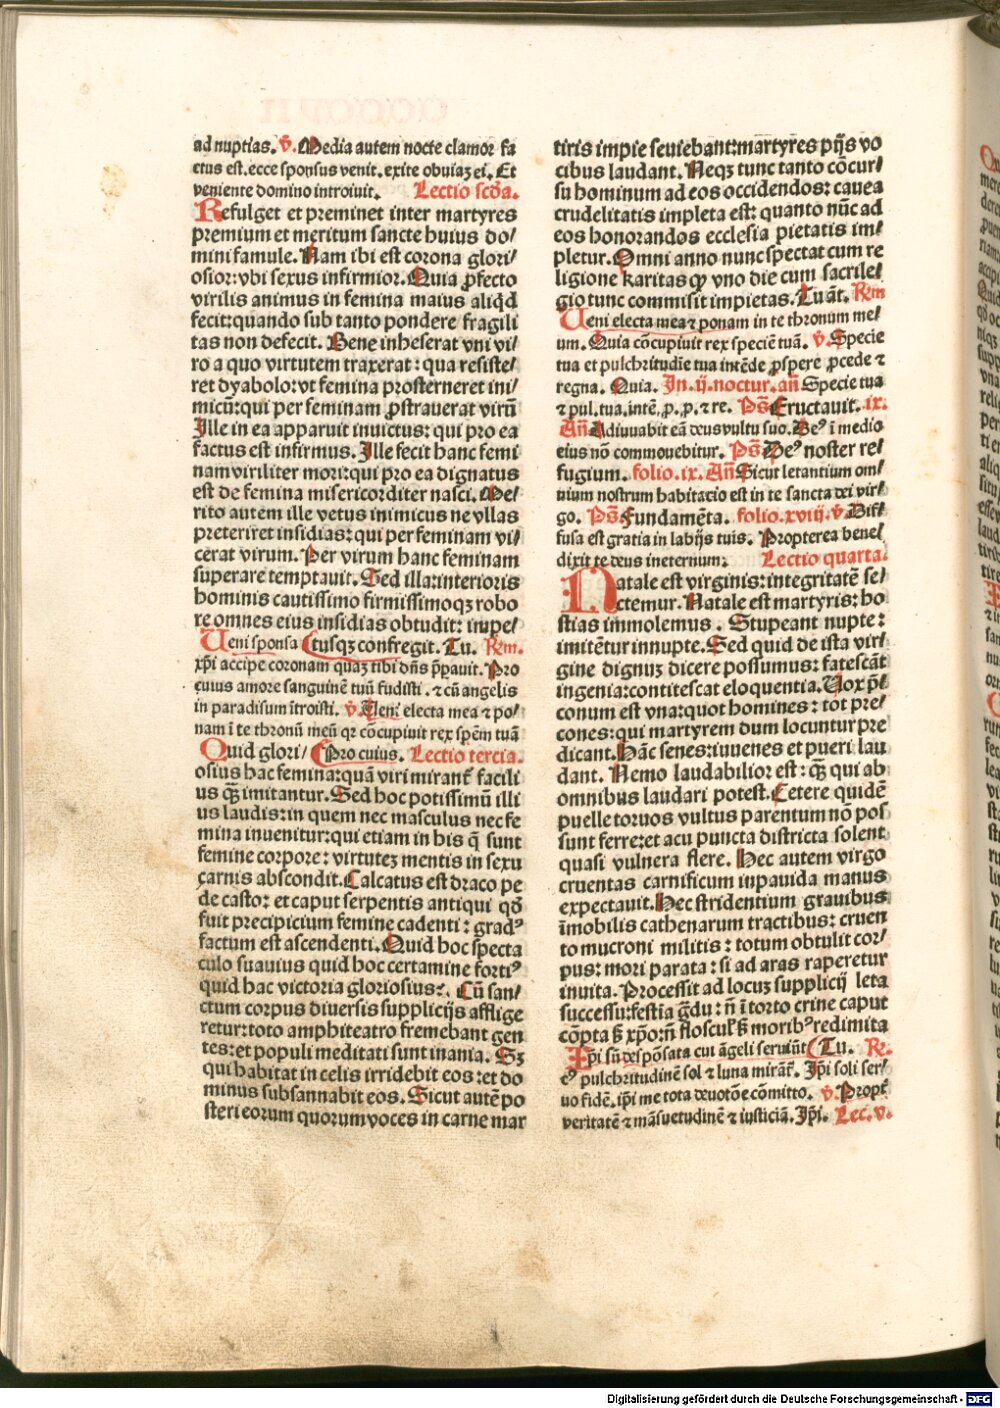 ad nuptias. v̄. Media autem nocte clamor fa
ctus est. ecce sponsus venit. exite obuiaꝫ ei. Et
veniente domino introiuit. Lectio scďa.
Refulget et preminet inter martyres
premium et meritum sancte huius do/
mini famule. Nam ibi est corona glori/
osior: vbi sexus infirmior. Quia ꝓfecto
virilis animus in femina maius aliqd
fecit: quando sub tanto pondere fragili
tas non defecit. Bene inheserat vni vi/
ro a quo virtutem traxerat: qua resiste/
ret dyabolo: vt femina prosterneret ini/
micū: qui per feminam ꝓstrauerat virū
Ille in ea apparuit inuictus: qui pro ea
factus est infirmus. Ille fecit hanc femi
nam viriliter mori: qui pro ea dignatus
est de femina misericorditer nasci. Me/
rito autem ille vetus inimicus ne vllas
preteriret insidias: qui per feminam vi/
cerat virum. Per virum hanc feminam
superare temptauit. Sed illa: interioris
hominis cautissimo firmissimoqꝫ robo
re omnes eius insidias obtudit: impe/
Ueni sponsa tusqꝫ confregit. Tu. Rm̄.
xp̄i accipe coronam quaꝫ tibi dn̄s p̄pauit. Pro
cuius amore sanguinē tuū fudisti. ⁊ cū angelis
in paradisum ītroisti. v̄. Ueni electa mea ⁊ po/
nam ī te thronū meū qꝛ cōcupiuit rex spēm tuā
Quid glori/ Pro cuius. Lectio tercia.
osius hac femina: quā viri mirant᷑ facili
us qᷓꝫ imitantur. Sed hoc potissimū illi
us laudis: in quem nec masculus nec fe
mina inuenitur: qui etiam in his q̄ sunt
femine corpore: virtuteꝫ mentis in sexu
carnis abscondit. Calcatus est draco pe
de casto: et caput serpentis antiqui qď
fuit precipicium femine cadenti: gradꝰ
factum est ascendenti. Quid hoc specta
culo suauius quid hoc certamine fortiꝰ
quid hac victoria gloriosius: Cū san/
ctum corpus diuersis supplicijs afflige
retur: toto amphiteatro fremebant gen
tes: et populi meditati sunt inania. Sꝫ
qui habitat in celis irridebit eos: et do
minus subsannabit eos. Sicut autē po
steri eorum quorum voces in carne mar
tiris impie seuiebant: martyres pijs vo
cibus laudant. Neqꝫ tunc tanto cōcur/
su hominum ad eos occidendos: cauea
crudelitatis impleta est: quanto nūc ad
eos honorandos ecclesia pietatis im/
pletur. Omni anno nunc spectat cum re
ligione karitas qď vno die cum sacrile/
gio tunc commisit impietas. Tu āt. Rm̄
Ueni electa mea ⁊ ponam in te thronum me/
um. Quia cōcupiuit rex speciē tuā. v̄. Specie
tua et pulchritudīe tua intēde ꝓspere ꝓcede ⁊
regna. Quia. In. ij. noctur. an̄ Specie tua
⁊ pul. tua. intē. p. p. ⁊ re. Ps̄ Eructauit. ix.
An̄ Adiuuabit eā deus vultu suo. Deꝰ ī medio
eius nō commouebitur. Ps̄ Deꝰ noster re/
fugium. folio. ix. An̄ Sicut letantium om/
nium nostrum habitacio est in te sancta dei vir/
go. Ps̄ Fundamēta. folio. xviij. v̄. Dif/
fusa est gratia in labijs tuis. Propterea bene/
dixit te deus in eternum. Lectio quarta.
Natale est virginis: integritatē se/
ctemur. Natale est martyris: ho
stias immolemus. Stupeant nupte:
imitētur innupte. Sed quid de ista vir/
gine dignuꝫ dicere possumus: fatescāt
ingenia: contitescat eloquentia. Vox p̄/
conum est vna: quot homines: tot pre/
cones: qui martyrem dum locuntur pre
dicant. Hāc senes: iuuenes et pueri lau
dant. Nemo laudabilior est: qᷓꝫ qui ab
omnibus laudari potest. Cetere quidē
puelle toruos vultus parentum nō pos
sunt ferre: et acu puncta districta solent
quasi vulnera flere. Hec autem virgo
cruentas carnificum inpauida manus
expectauit. Hec stridentium grauibus
īmobilis cathenarum tractibus: cruen
to mucroni militis: totum obtulit cor/
pus: mori parata: si ad aras raperetur
inuita. Processit ad locuꝫ supplicij leta
successu: festīa gᷓdu: ñ ī torto crine caput
cōpta ꝭ xp̄o: ñ flosculꝭ ꝭ moribꝰ redimita
Xp̄i sū despōsata cui āgeli seruiūt Tu. R̄.
eꝰ pulchritudinē sol ⁊ luna mirāt᷑. Ip̄i soli ser/
uo fidē. ip̄i me tota deuotōe cōmitto. v̄. Propt᷑
veritatē ⁊ māsuetudinē ⁊ iusticiā. Ip̄i. Lec. v.
Digitalisierung gefördert durch die Deutsche Forschungsgemeinschaft - DFG